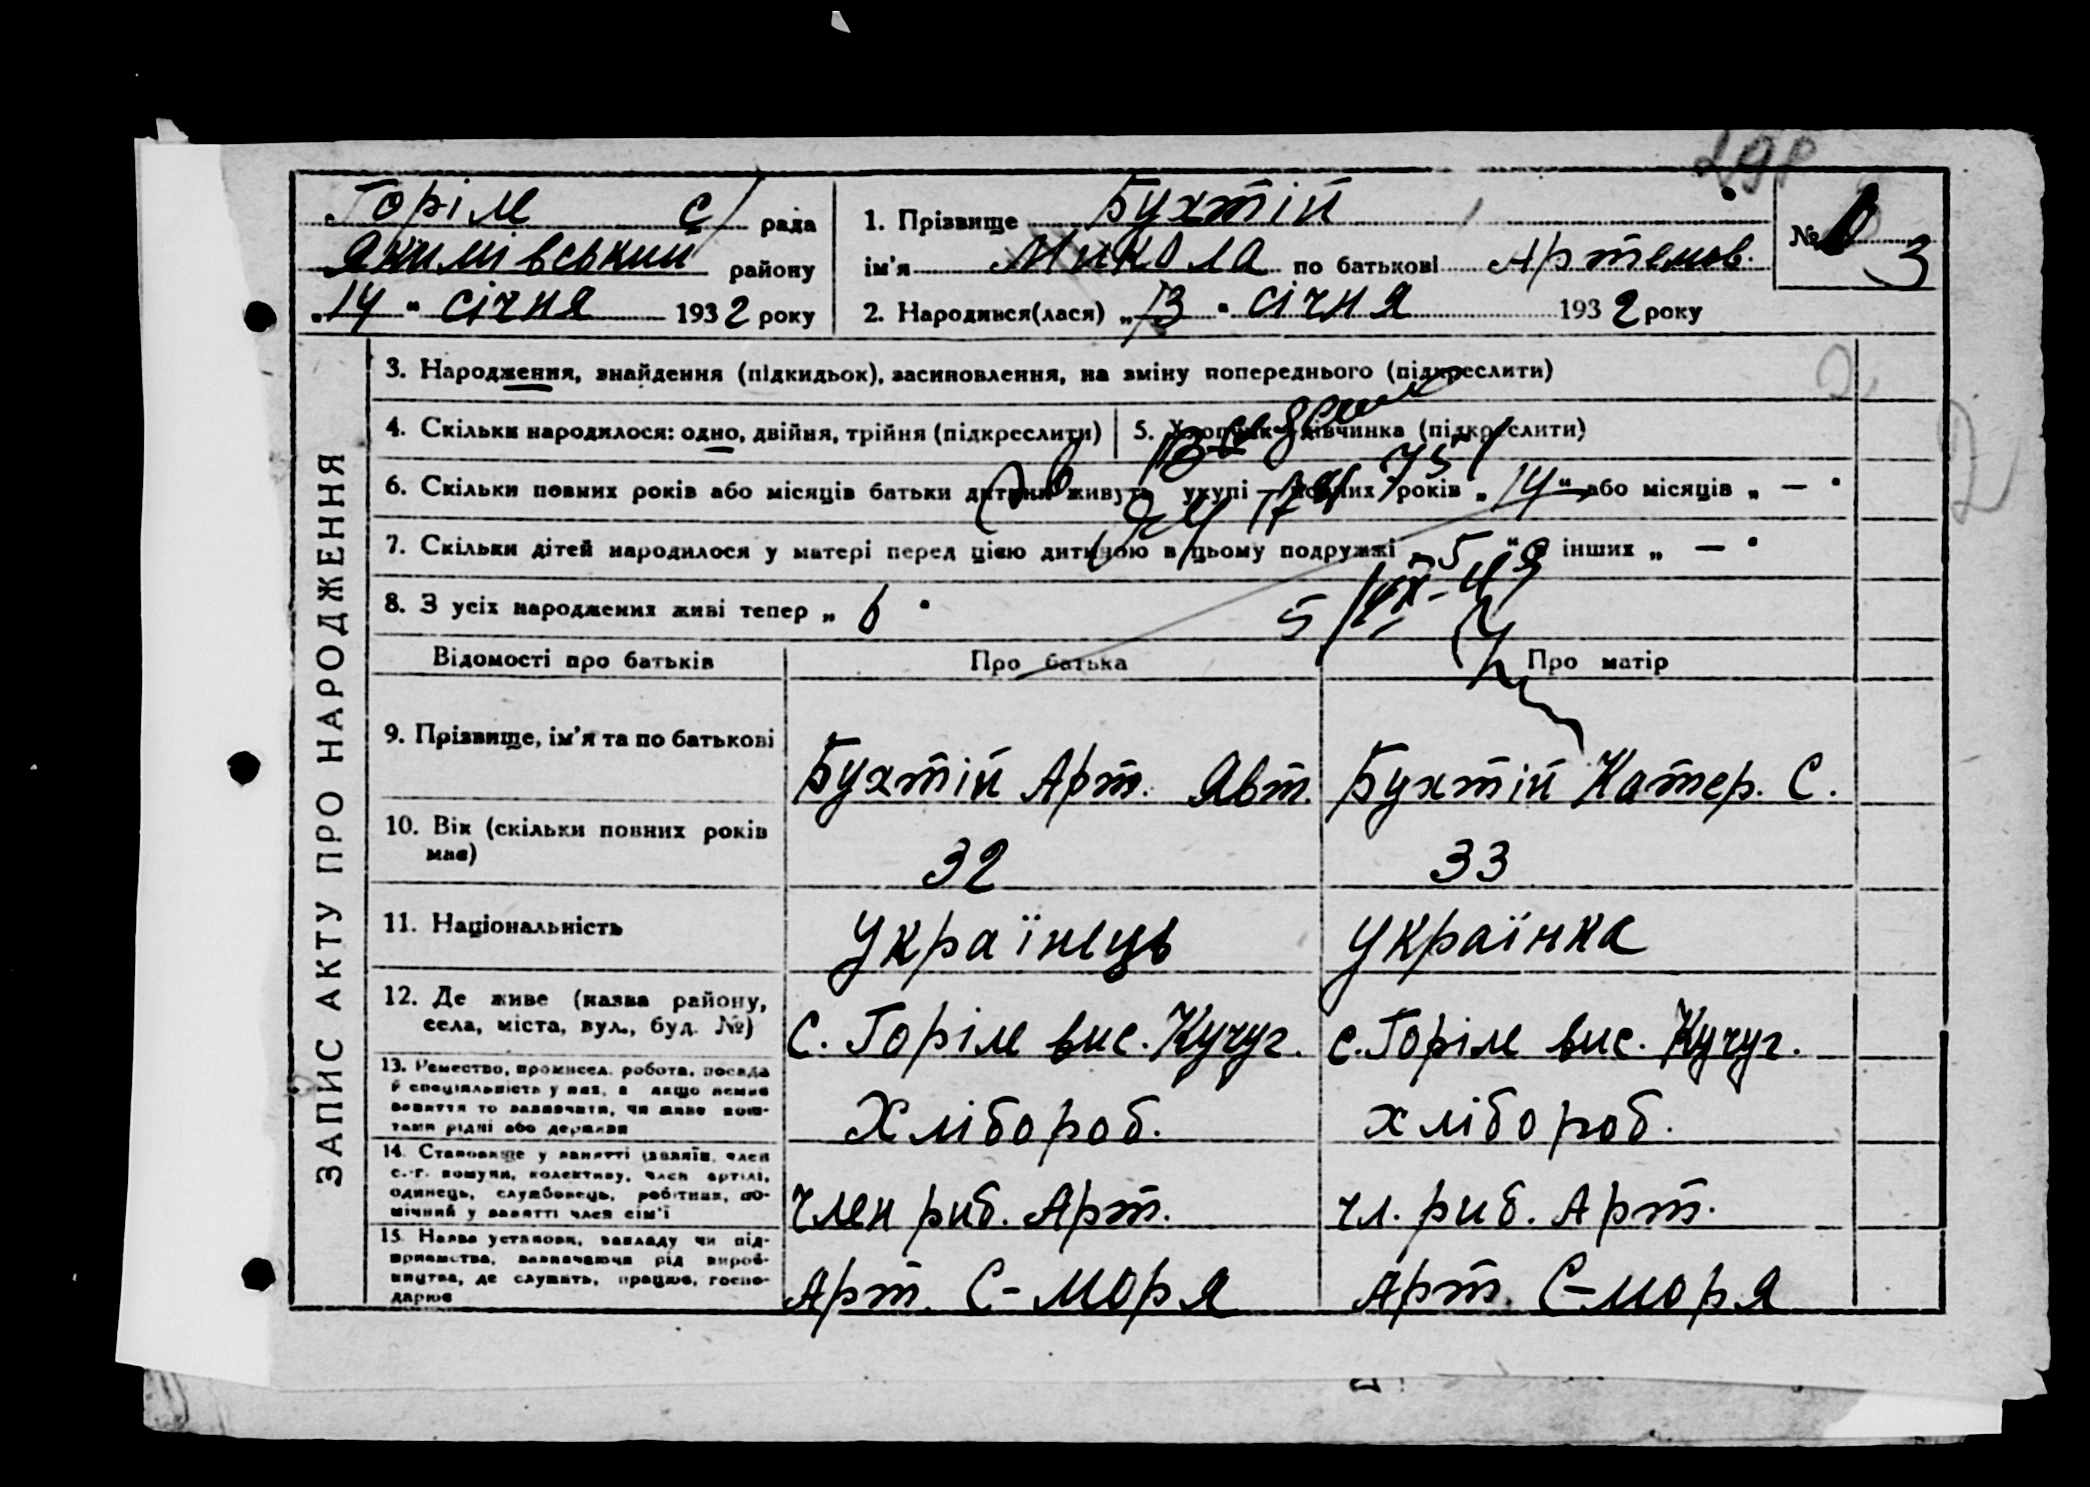 298
Горіле с/ рада
Якимівський району
„14" січня 1932 року
1. Прізвище Бухтій
ім'я Микола по батькові Артемов.
№ 3
2. Народився(лася) „13" січня 1932 року
ЗАПИС АКТУ ПРО НАРОДЖЕННЯ
3. Народження, знайдення (підкидьок), засиновлення, на зміну попереднього (підкреслити)
4. Скільки народилося: одно, двійня, трійня (підкреслити)
5. Хлопчик дівчинка (підкреслити)
6. Скільки повних років або місяців батьки дитини живуть укупі повних років „14" або місяців „ — "
7. Скільки дітей народилося у матері перед цією дитиною в цьому подружжі „5" в інших „ — "
8. З усіх народжених живі тепер „ 6 "
Відомості про батьків
Про батька
Про матір
9. Прізвище, ім'я та по батькові
Бухтій Арт. Явт.
Бухтій Катер. С.
10. Вік (скільки повних років має)
32
33
11. Національність
Українець
Українка
12. Де живе (назва району, села, міста, вул., буд. №)
С. Горіле вис. Кучуг.
с. Горіле вис. Кучуг.
13. Ремество, промисел, робота, посада й спеціяльність у них, а якщо немає заняття то зазначити, чи живе коштами рідні або держави
Хлібороб.
хлібороб.
14. Становище у занятті (хазяїн, член с.-г. комуни, колективу, член артілі, одинець, службовець, робітник, помічний у занятті член сім'ї
член риб. Арт.
чл. риб. Арт.
15. Назва установи, закладу чи підприємства, зазначаючи рід виробництва, де служить, працює, господарює
Арт. С-моря
Арт. С-моря